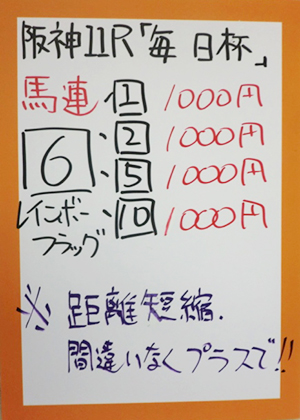 阪神11R「毎日杯」
馬連 1 1000円
6 ・ 2 1000円
・ 5 1000円
レインボーフラッグ ・ 10 1000円
※ 距離短縮.
間違いなくプラスで!!